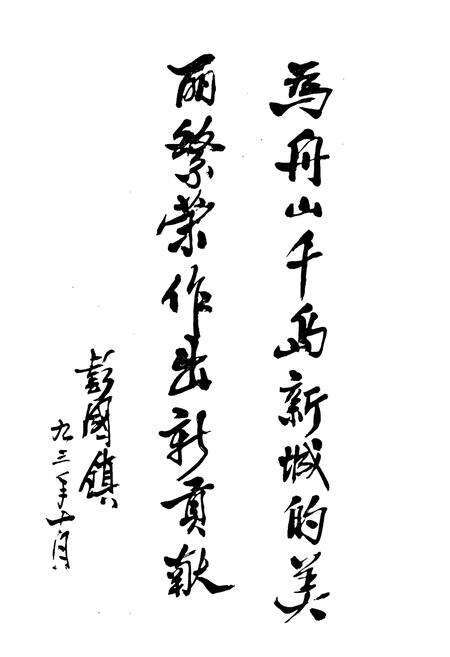 為舟山千岛新城的美
丽繁荣作出新贡献
彭國鎮
九三年十月